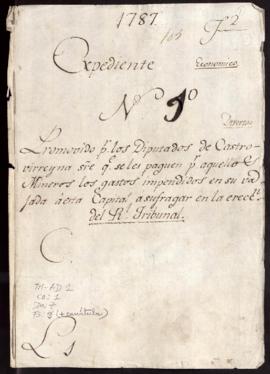 1787
Expediente
Economico
Nº 5º
Promovido pr. los Diputados de Castro-
virreyna sre. q. se les paguen pr. aquellos
Mineros los gastos impendidos en su va
jada a esta Capital, a sufragar en la erecc.n
del Rl. Tribunal.
C.
TM-AD 2
Ca: 1